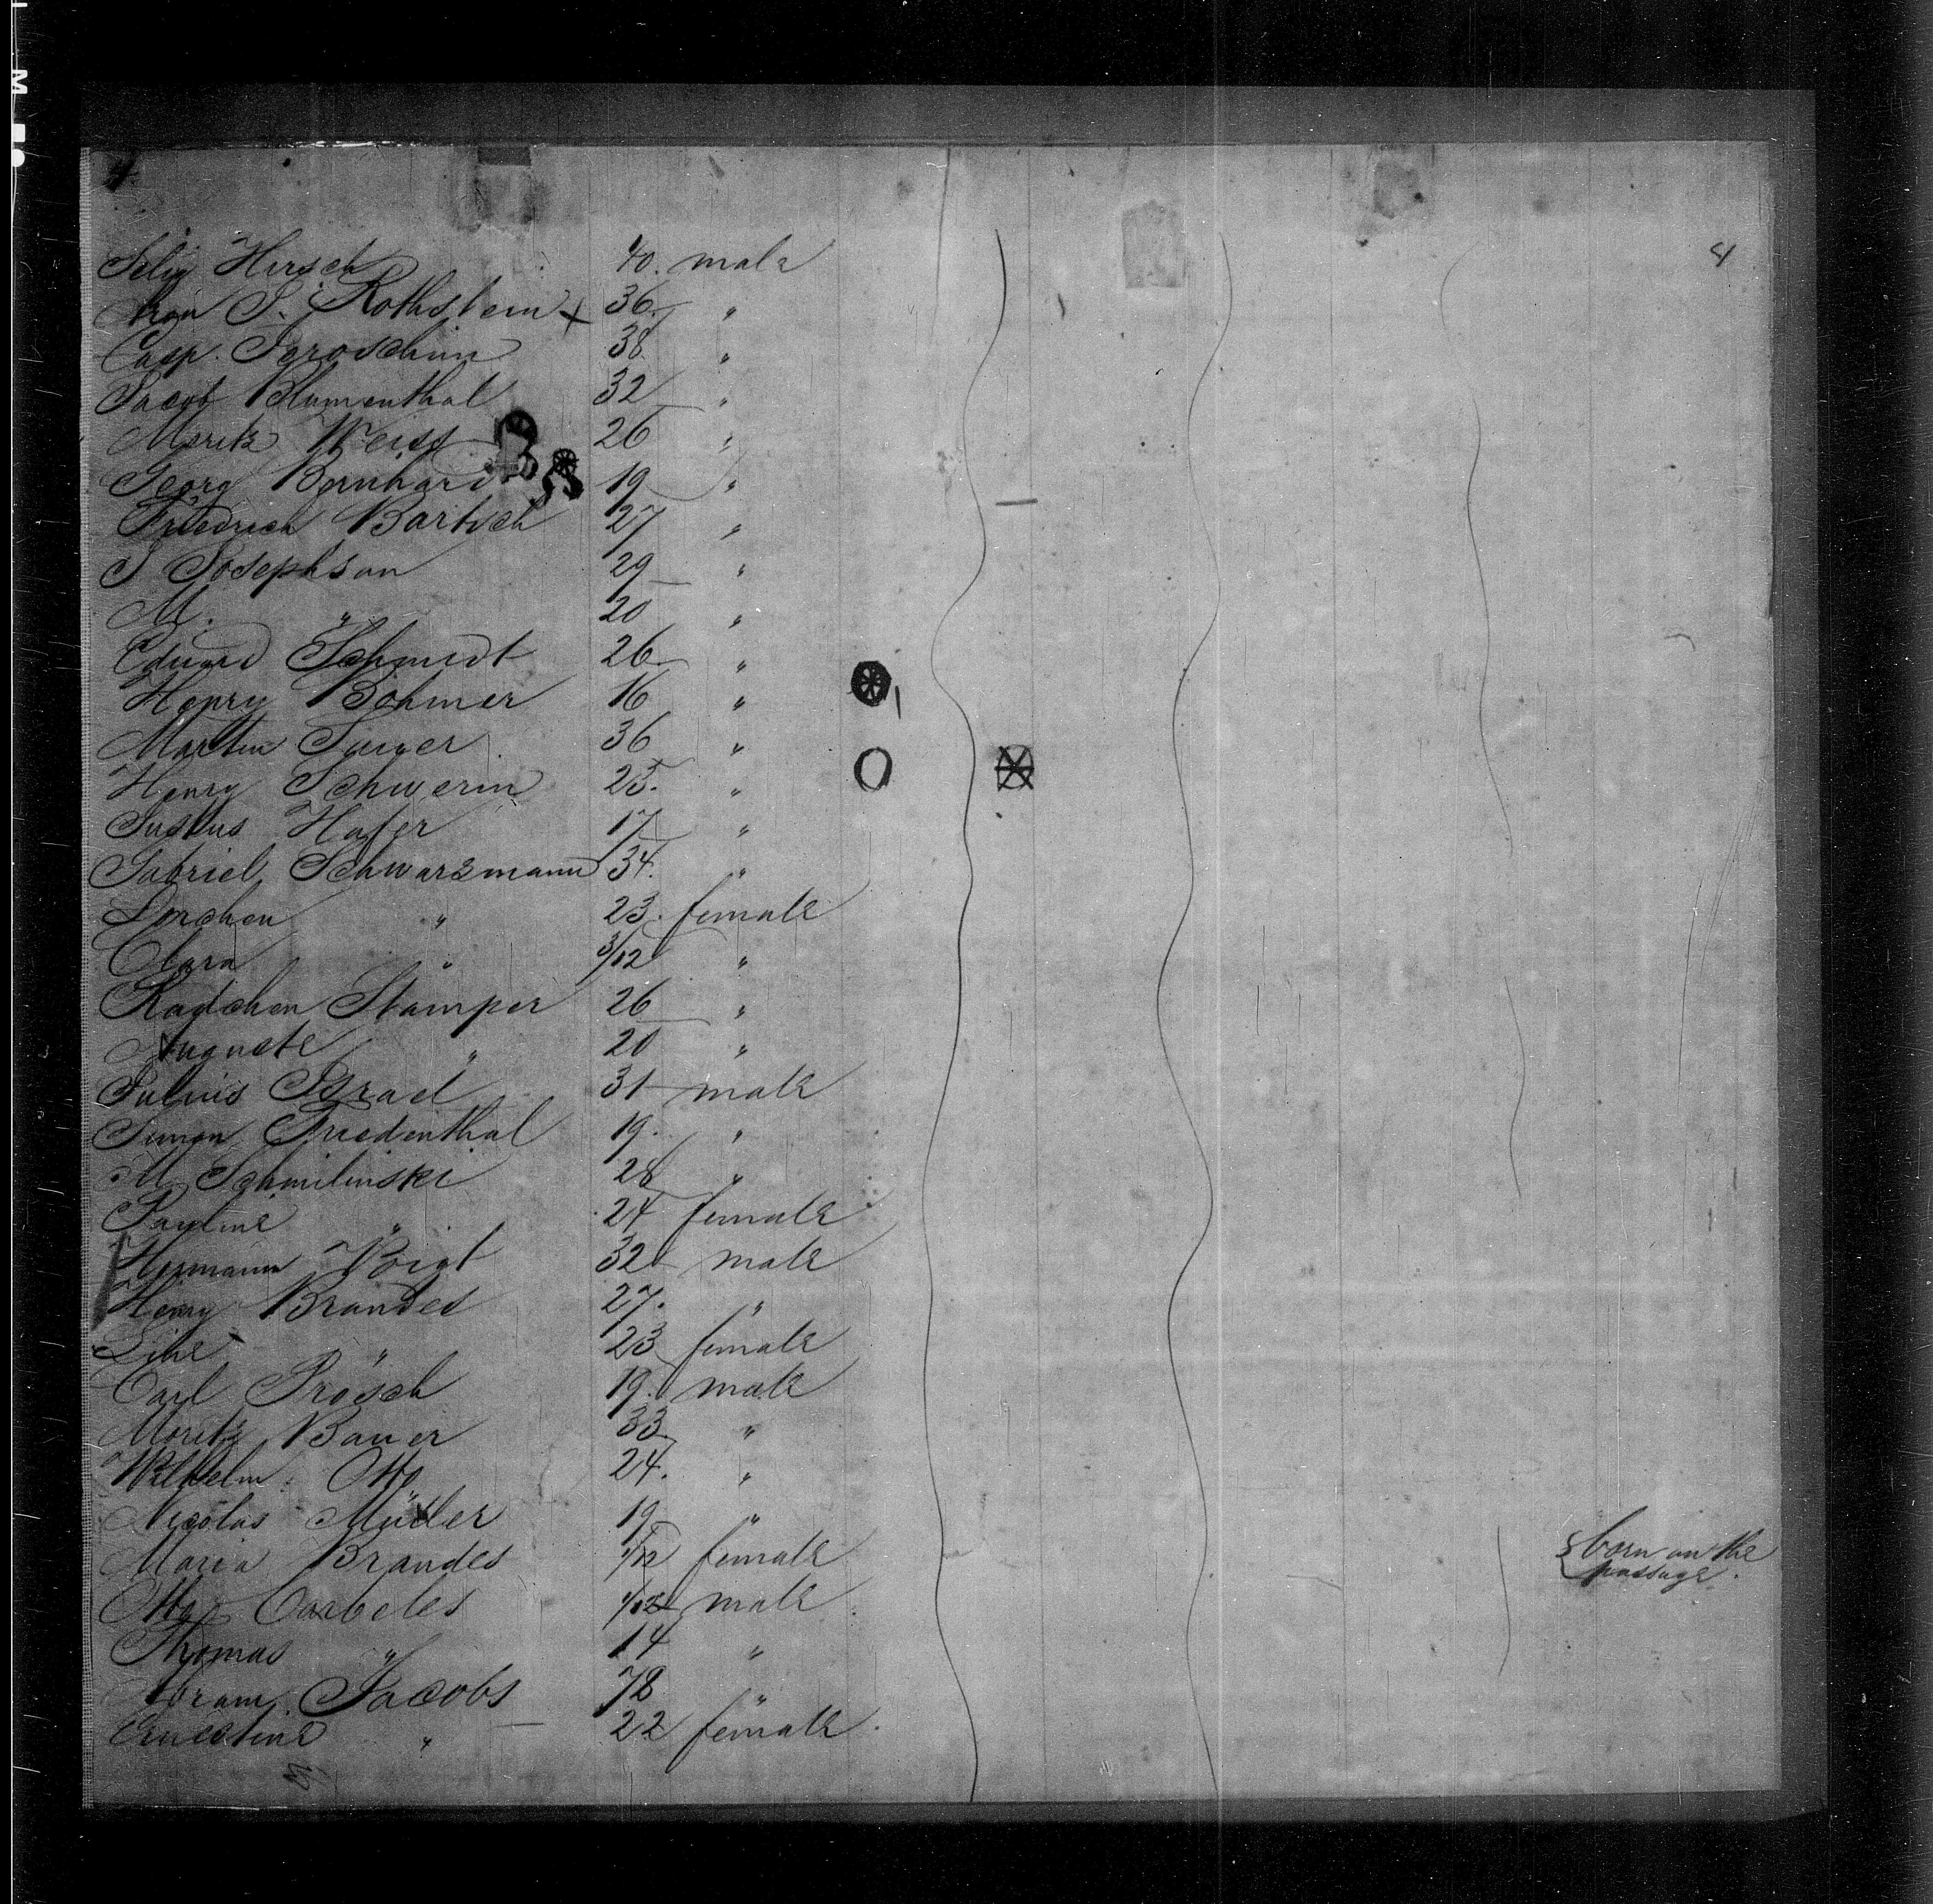 4
Selig Hirsch 40. male
Aron S. Rothstein 36 "
Casp. 38 "
Jacob Blumenthal 32 "
Moritz Weiss 26 "
Georg Bernhard 19 "
Friedrich Bartsch 27 "
S Josephson 29 "
M. " 20 "
Eduard Schmidt 26 "
Henry Böhmer 16 "
Martin 36 "
Henry Schwerin 25. "
Justus Hafer 17 "
Gabriel Schwarzmann 34. "
Dorchen " 23. female
Clara " 3/12 "
Radchen Stamper 26 "
Auguste " 20 "
Julius Israel 31 male
Simon Friedenthal 19. "
M Schmilinski 28 "
Pauline " 24 female
Hermann Voigt 32 male
Henry Brandes 27. "
Line " 23 female
Carl Prösch 19. male
Moritz Bauer 33 "
Wilhelm Otto 24. "
Nicolas Müller 19 "
Maria Brandes 1/12 female born on the
passage.
Otto Carbeles 1/12 male
Thomas " 14 "
Abram Jacobs 78 "
Ernestine " 22 female